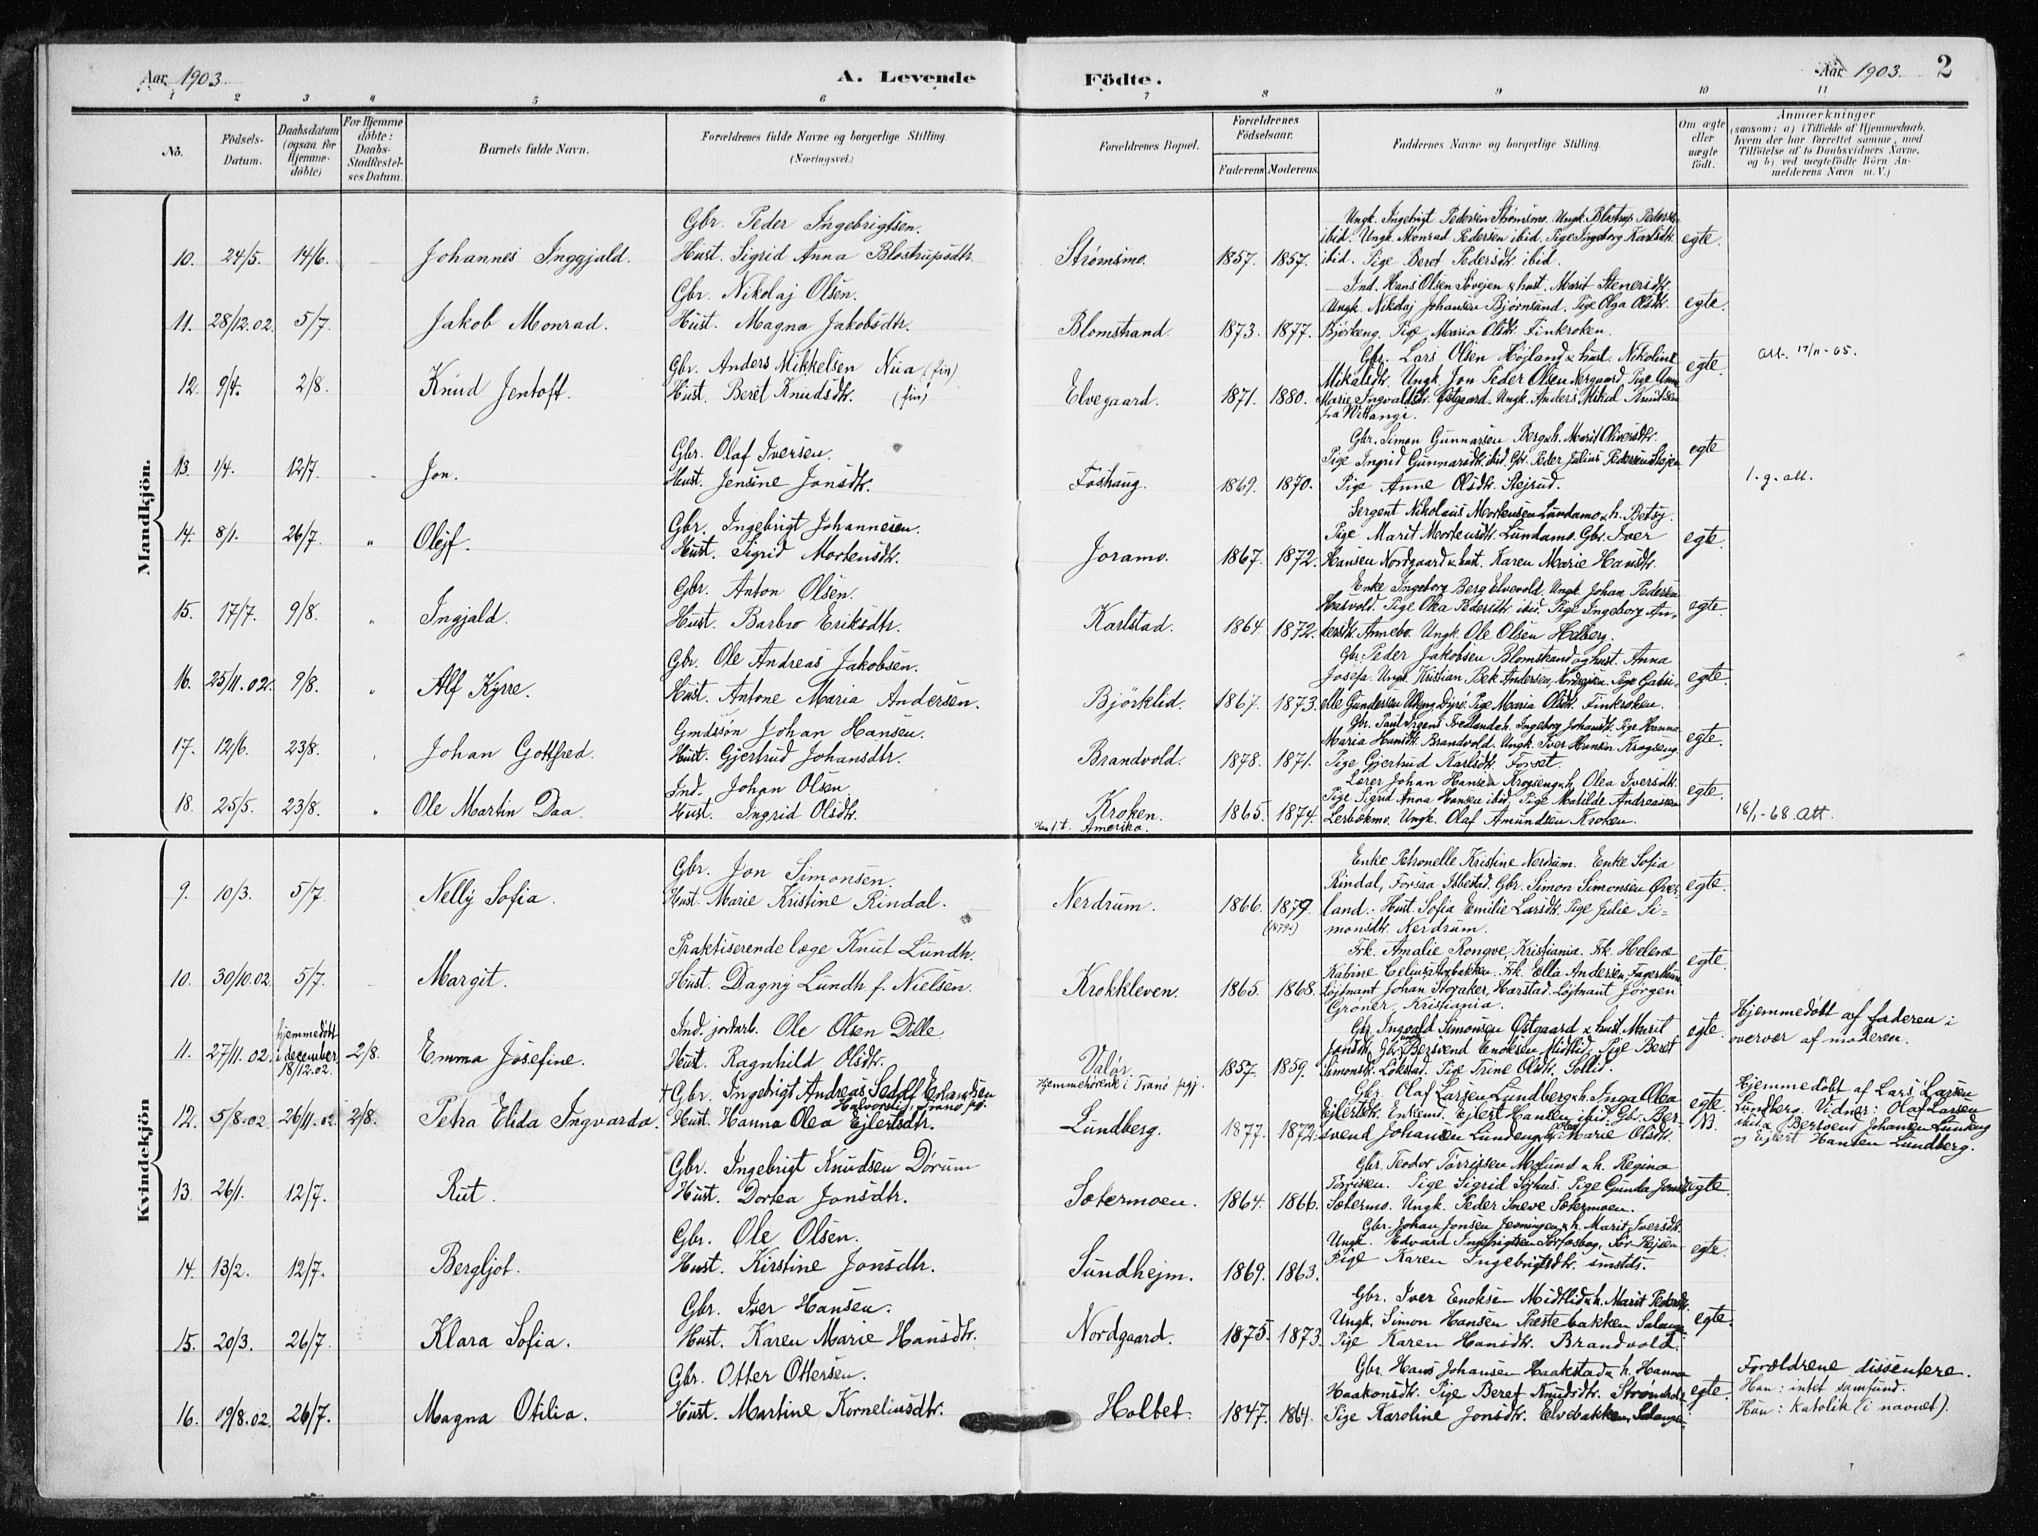 Aar 1903. A. Levende Födte. Aar 1903. 2
1 2 3 4 5 6 7 8 9 10 11
No. Födsels-Datum. Daabsdatum (ogsaa for Hjemmedöbte) For Hjemmedöbte: Daabs-Stadfestelses Datum. Barnets fulde Navn. Forældrenes fulde Navne og borgerlige Stilling. (Næringsvei.) Forældrenes Bopæl. Forældrenes Födselsaar. Faderens Moderens. Faddernes Navne og borgerlige Stilling. Om ægte eller uægte födt. Anmærkninger (saasom: a) i Tilfælde af Hjemmedaab, hvem der har forrettet samme, med Tilföielse af to Daabsvidners Navne, og b) ved uægtefödte Börn Anmelderens Navn m. V.)
Mandkjön.
Gbr. Peder Ingebrigtsen. Ungk. Ingebrigt Pedersen Strømsmo. Ungk. Blostrup Pedersen
ibid. Ungk. Monrad Pedersen ibid. Pige Ingeborg Karlsdtr.
10. 24/5. 14/6. Johannes Inggjald. Hust. Sigrid Anna Blostrupsdtr. Strømsmo. 1857. 1857. ibid. Pige Beret Pedersdtr. ibid. egte.
Gbr. Nikolaj Olsen. Ind. Hans Olsen Søvejen & hust. Marit Stenersdtr.
Ungk. Nikolaj Johansen Bjørnsund. Pige Olga Olsdtr. egte.
11. 28/12.02. 5/7. Jakob Monrad. Hust. Magna Jakobsdtr. Blomstrand. 1873. 1877. Bjørkeng. Pige Maria Olsdtr. Finkroken.
Gbr. Anders Mikkelsen Niia (fin) Gbr. Lars Olsen Højland & hust. Nikoline att. 17/11-65.
Mikalsdtr. Ungk. Jon Peder Olsen Nergaard. Pige Ane egte.
12. 9/4. 2/8. Knud Jentoft. Hust. Beret Knudsdtr. (fin) Elvegaard. 1871. 1880. Marie Ingvaldsdtr. Østgaard. Ungk. Anders Mikal Knutsen
fra Wittangi.
Gbr. Olaf Iversen. Gbr. Simon Gunnarsen Berg & h. Marit Oliversdtr.
13. 1/4. 12/7. Jon. Pige Ingrid Gunnarsdtr. ibid. Gbr. Peder Julius Pedersen egte
Hust. Jensine Jonsdtr. Foshaug. 1869. 1870. Pige Anne Olsdtr. Stejrud. 1. g. att.
Gbr. Ingebrigt Johannesen. Sergent Nikolaus Mortensen Lundamo & h. Betsy.
14. 8/1. 26/7. " Olejf. Pige Marit Mortensdtr. Lundamo. Gbr. Iver egte.
Hust. Sigrid Mortensdtr. Joramo. 1867. 1872. Hansen Nordgaard & hust. Karen Marie Hansdtr.
Gbr. Anton Olsen. Enke Ingeborg Berg Elvevold. Ungk. Johan Pedersen
15. 17/7. 9/8. " Ingjald. Pige Olea Pedersdtr. ibid. Pige Ingeborg An- egte.
Hust. Barbro Eriksdtr. Karlstad. 1864. 1872. dersdtr. Annebo. Ungk. Ole Olsen Holberg.
Gbr. Ole Andreas Jakobsen. Gbr. Peder Jakobsen Blomstrand og hust. Anna
16. 25/11.02. 9/8. " Alf Kyrre. Josefa. Ungk. Kristian Bek Andersen, Nordreisen. Pige Gabri- egte.
Hust. Antone Maria Andersen. Bjørklid. 1867. 1873. elle Gundersen Dyrø. Pige Maria Olsdtr. Finkroken.
Gmdssøn Johan Hansen. Ingeborg Johansdtr. Pige Hanna
17. 12/6. 23/8. Johan Gottfred. Maria Hansdtr. Brandvold. Ungk. Iver Hansen Krogseng. egte.
Hust. Gjertrud Johansdtr. Brandvold. 1878. 1871. Pige Gjertrud Karlsdtr. Forset.
Ind. Johan Olsen. Lærer Johan Hansen Krogseng & h. Olea Iversdtr.
18. 25/5. 23/8. " Ole Martin Daa. Pige Sigrid Anna Hansen ibid. Pige Matilde Andreassen egte.
Hust. Ingrid Olsdtr. Kroken. 1865. 1874. Lerbækmo. Ungk. Olaf Amundsen Kroken. 18/1-68 att.
Han f. t. Amerika.
Kvindekjön
Gbr. Jon Simonsen. Enke Petronelle Kristine Nerdrum. Enke Sofia
9. 10/3. 5/7. Nelly Sofia. Rindal, Forsaa Ibbestad. Gbr. Simon Simonsen Øver- egte.
Hust. Marie Kristine Rindal. Nerdrum. 1866. 1879 (1879.) land. Hust. Sofia Emilie Larsdtr. Pige Julie Si-
monsdtr. Nerdrum.
Praktiserende læge Knut Lundh. Frk. Amalie Rongve, Kristiania. Frk. Helene
10. 30/10.02. 5/7. Margit. Kabine Celius Storbakken. Frk. Ella Andersen egte.
Hust. Dagny Lundh f. Nielsen. Krokkleven. 1865. 1868. Løjtnant Johan Storaker, Harstad. Løjtnant Jørgen
Grøner Kristiania.
Ind. jordarb. Ole Olsen Dille. Gbr. Ingvald Simonsen Østgaard & hust. Marit Hjemmedøbt af faderen i
11. 27/11.02. hjemmedøbt i december 18/12.02. 2/8. Emma Josefine. Jonsdtr. Gbr. Bersvend Enoksen Midtlid. Pige Beret egte. overvær af moderen.
Hust. Ragnhild Olsdtr. Valør. 1857. 1859. Simonsdtr. Løkstad. Pige Trine Olsdtr. Sollid.
Hjemmehørende i Tranø pgj.
† Gbr. Ingebrigt Andreas Sedolf Erlandsen Gbr. Olaf Larsen Lundberg & h. Inga Olea Hjemmedøbt af Lars Larsen
Halvorslid, Tranø pgj. Ejlertsdtr. Enkemd. Ejlert Hansen ibid. Gbr. Ber- egte. Lundberg. Vidner: Olaf Larsen
12. 5/8.02 26/11.02. 2/8. Petra Elida Ingvarda. Hust. Hanna Olea Ejlertsdtr. Lundberg. 1877. 1872. svend Johansen Lundeng & h. Marie Olsdtr. NB. ibid & Bersvend Johansen Lundeng
og Ejlert Hansen Lundberg.
Gbr. Ingebrigt Knudsen Dørum Gbr. Teodor Tørrissen Molund & h. Regina
13. 26/1. 12/7. Rut. Tørrisen. Pige Sigrid Pige Gunda egte.
Hust. Dortea Jonsdtr. Sætermoen. 1864. 1866. Sætermo. Ungk. Peder Sneve Sætermoen.
Gbr. Ole Olsen. Gbr. Johan Jonsen Jevningen & h. Marit Iversdtr.
Ungk. Edvard Ingebrigtsen Sørfosbog, Sør-Rejsen. egte.
14. 13/2. 12/7. Bergljot. Hust. Kirstine Jonsdtr. Sundhejm. 1869. 1863. Pige Karen Ingebrigtsdtr. smstds.
Gbr. Iver Hansen. Gbr. Iver Enoksen Midtlid & h. Marit Pedersdtr.
15. 20/3. 26/7. Klara Sofia. Ungk. Simon Hansen Prestebakken Salangen egte.
Hust. Karen Marie Hansdtr. Nordgaard. 1875. 1873. Pige Karen Hansdtr. Brandvold.
Gbr. Otter Ottersen. Gbr. Hans Johansen Haakstad & h. Hanna Forældrene dissentere.
Haakonsdtr. Pige Beret Knudsdtr. Strømhole egte. Han: intet samfund.
16. 19/8.02. 26/7. Magna Otilia. Hust. Martine Korneliusdtr. Holbet. 1847. 1864. Pige Karoline Jonsdtr. Elvebakken, Salangen Hun: katolik (i navnet).